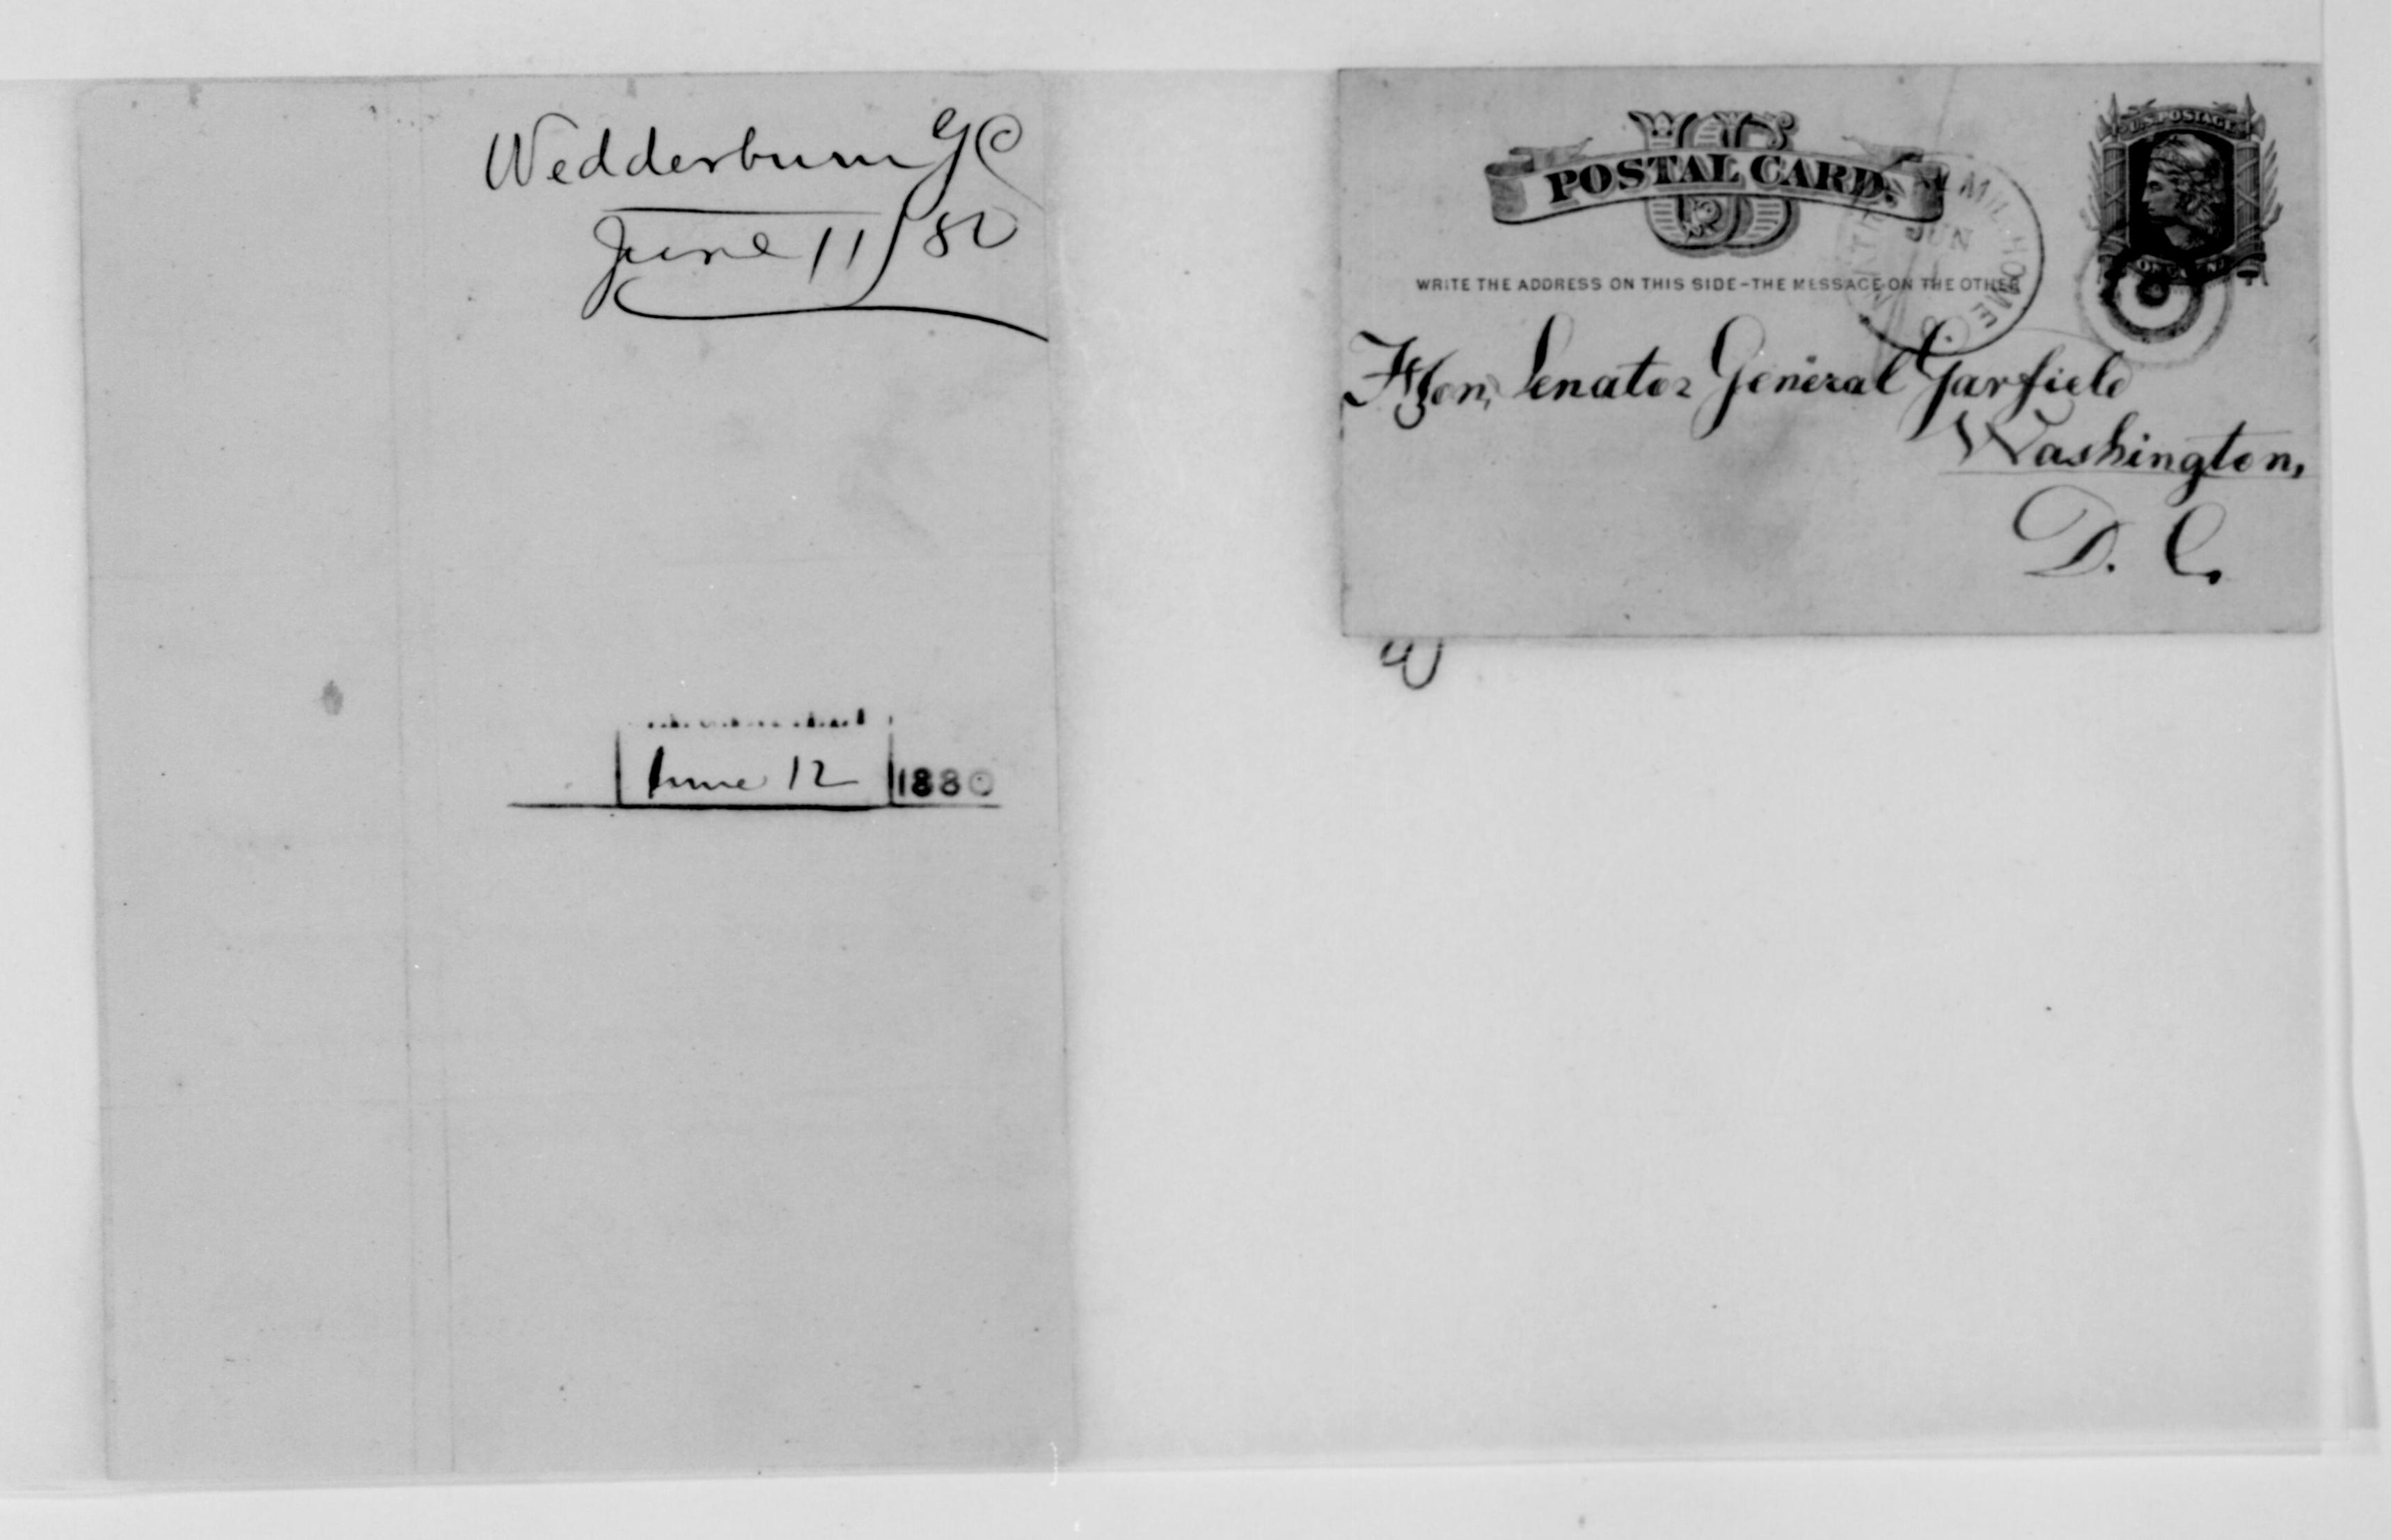 Wedderburn G C
June 11/80
June 12 1880
US
POSTAL CARD.
WRITE THE ADDRESS ON THIS SIDE-THE MESSAGE ON THE OTHER
U.S. POSTAGE
ONE CENT
MIL HOME
JUN
Hon, Senator General Garfield
Washington,
D. C.